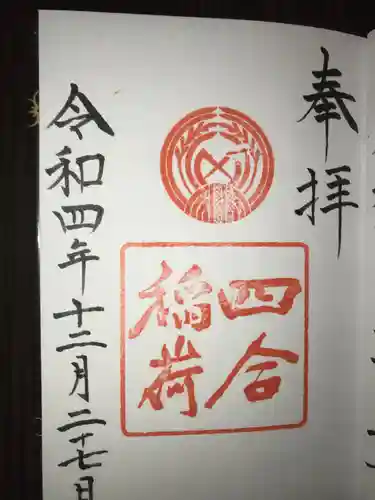 奉拝
四合
稲荷
令和四年十二月二十七日